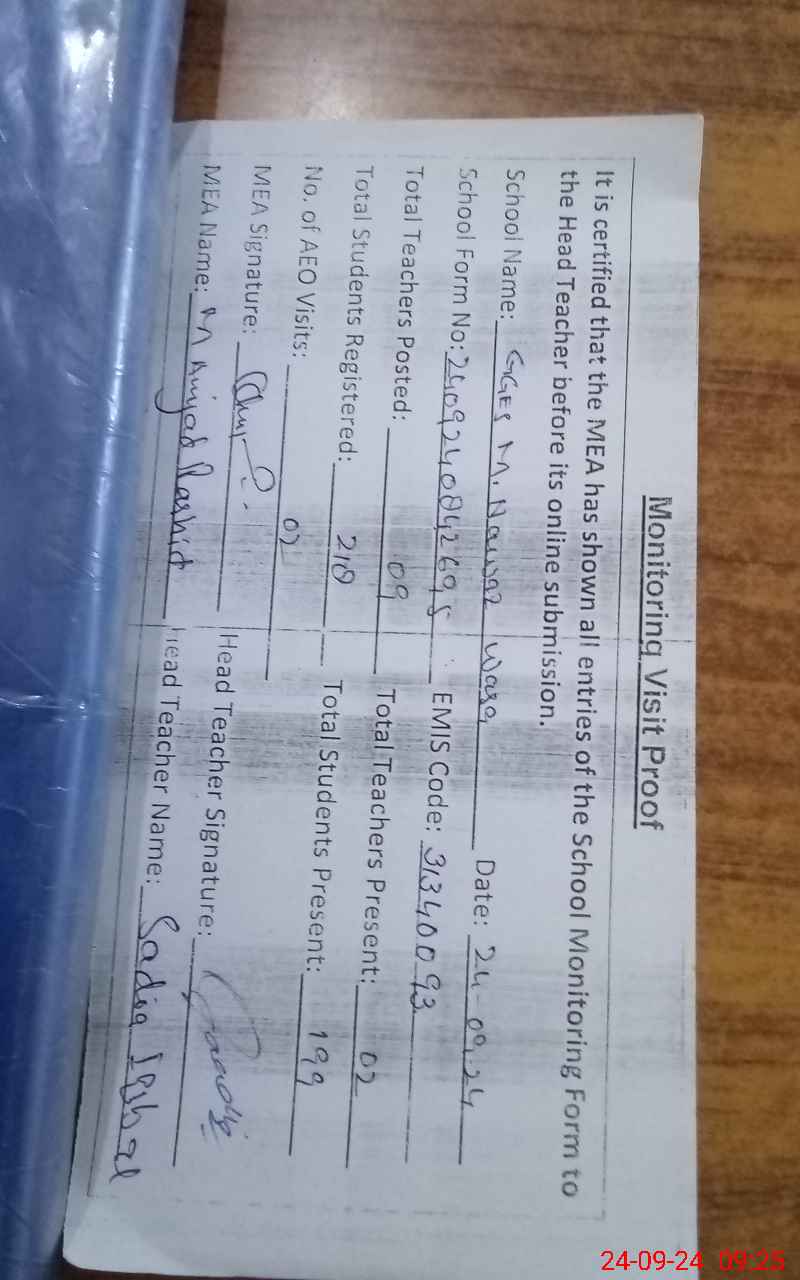 Monitoring Visit Proof
It is certified that the MEA has shown all entries of the School Monitoring Form to
the Head Teacher before its online submission.
School Name: GGES M. Nawaz Wara Date: 24-09-24
School Form No: 2409240842695 EMIS Code: 31340093
Total Teachers Posted: 09 Total Teachers Present: 02
Total Students Registered: 218 Total Students Present: 199
No. of AEO Visits: 02
MEA Signature: Head Teacher Signature:
MEA Name: M Amjad Rashid Head Teacher Name: Sadia Iqbal
24-09-24 09:25